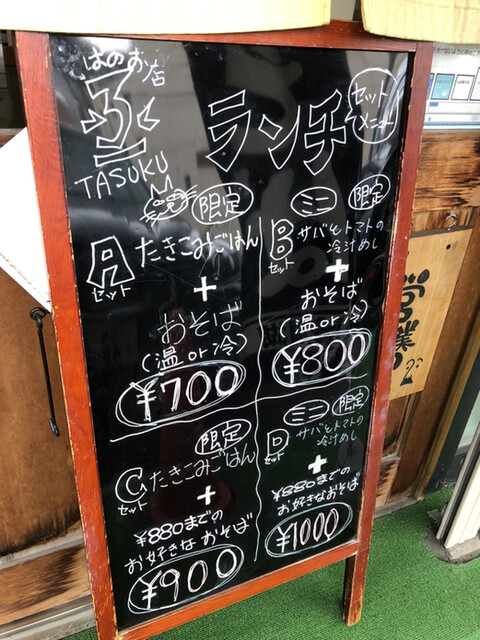 はのお店
TASUKU
ランチ
セット
メニュー
限定
A
セット
たきこみごはん
+
おそば
(温or冷)
¥700
ミニ
限定
B
セット
サバとトマトの
冷汁めし
+
おそば
(温or冷)
¥800
限定
C
セット
たきこみごはん
+
¥880までの
お好きなおそば
¥900
ミニ
限定
D
セット
サバとトマトの
冷汁めし
+
¥880までの
お好きなおそば
¥1000